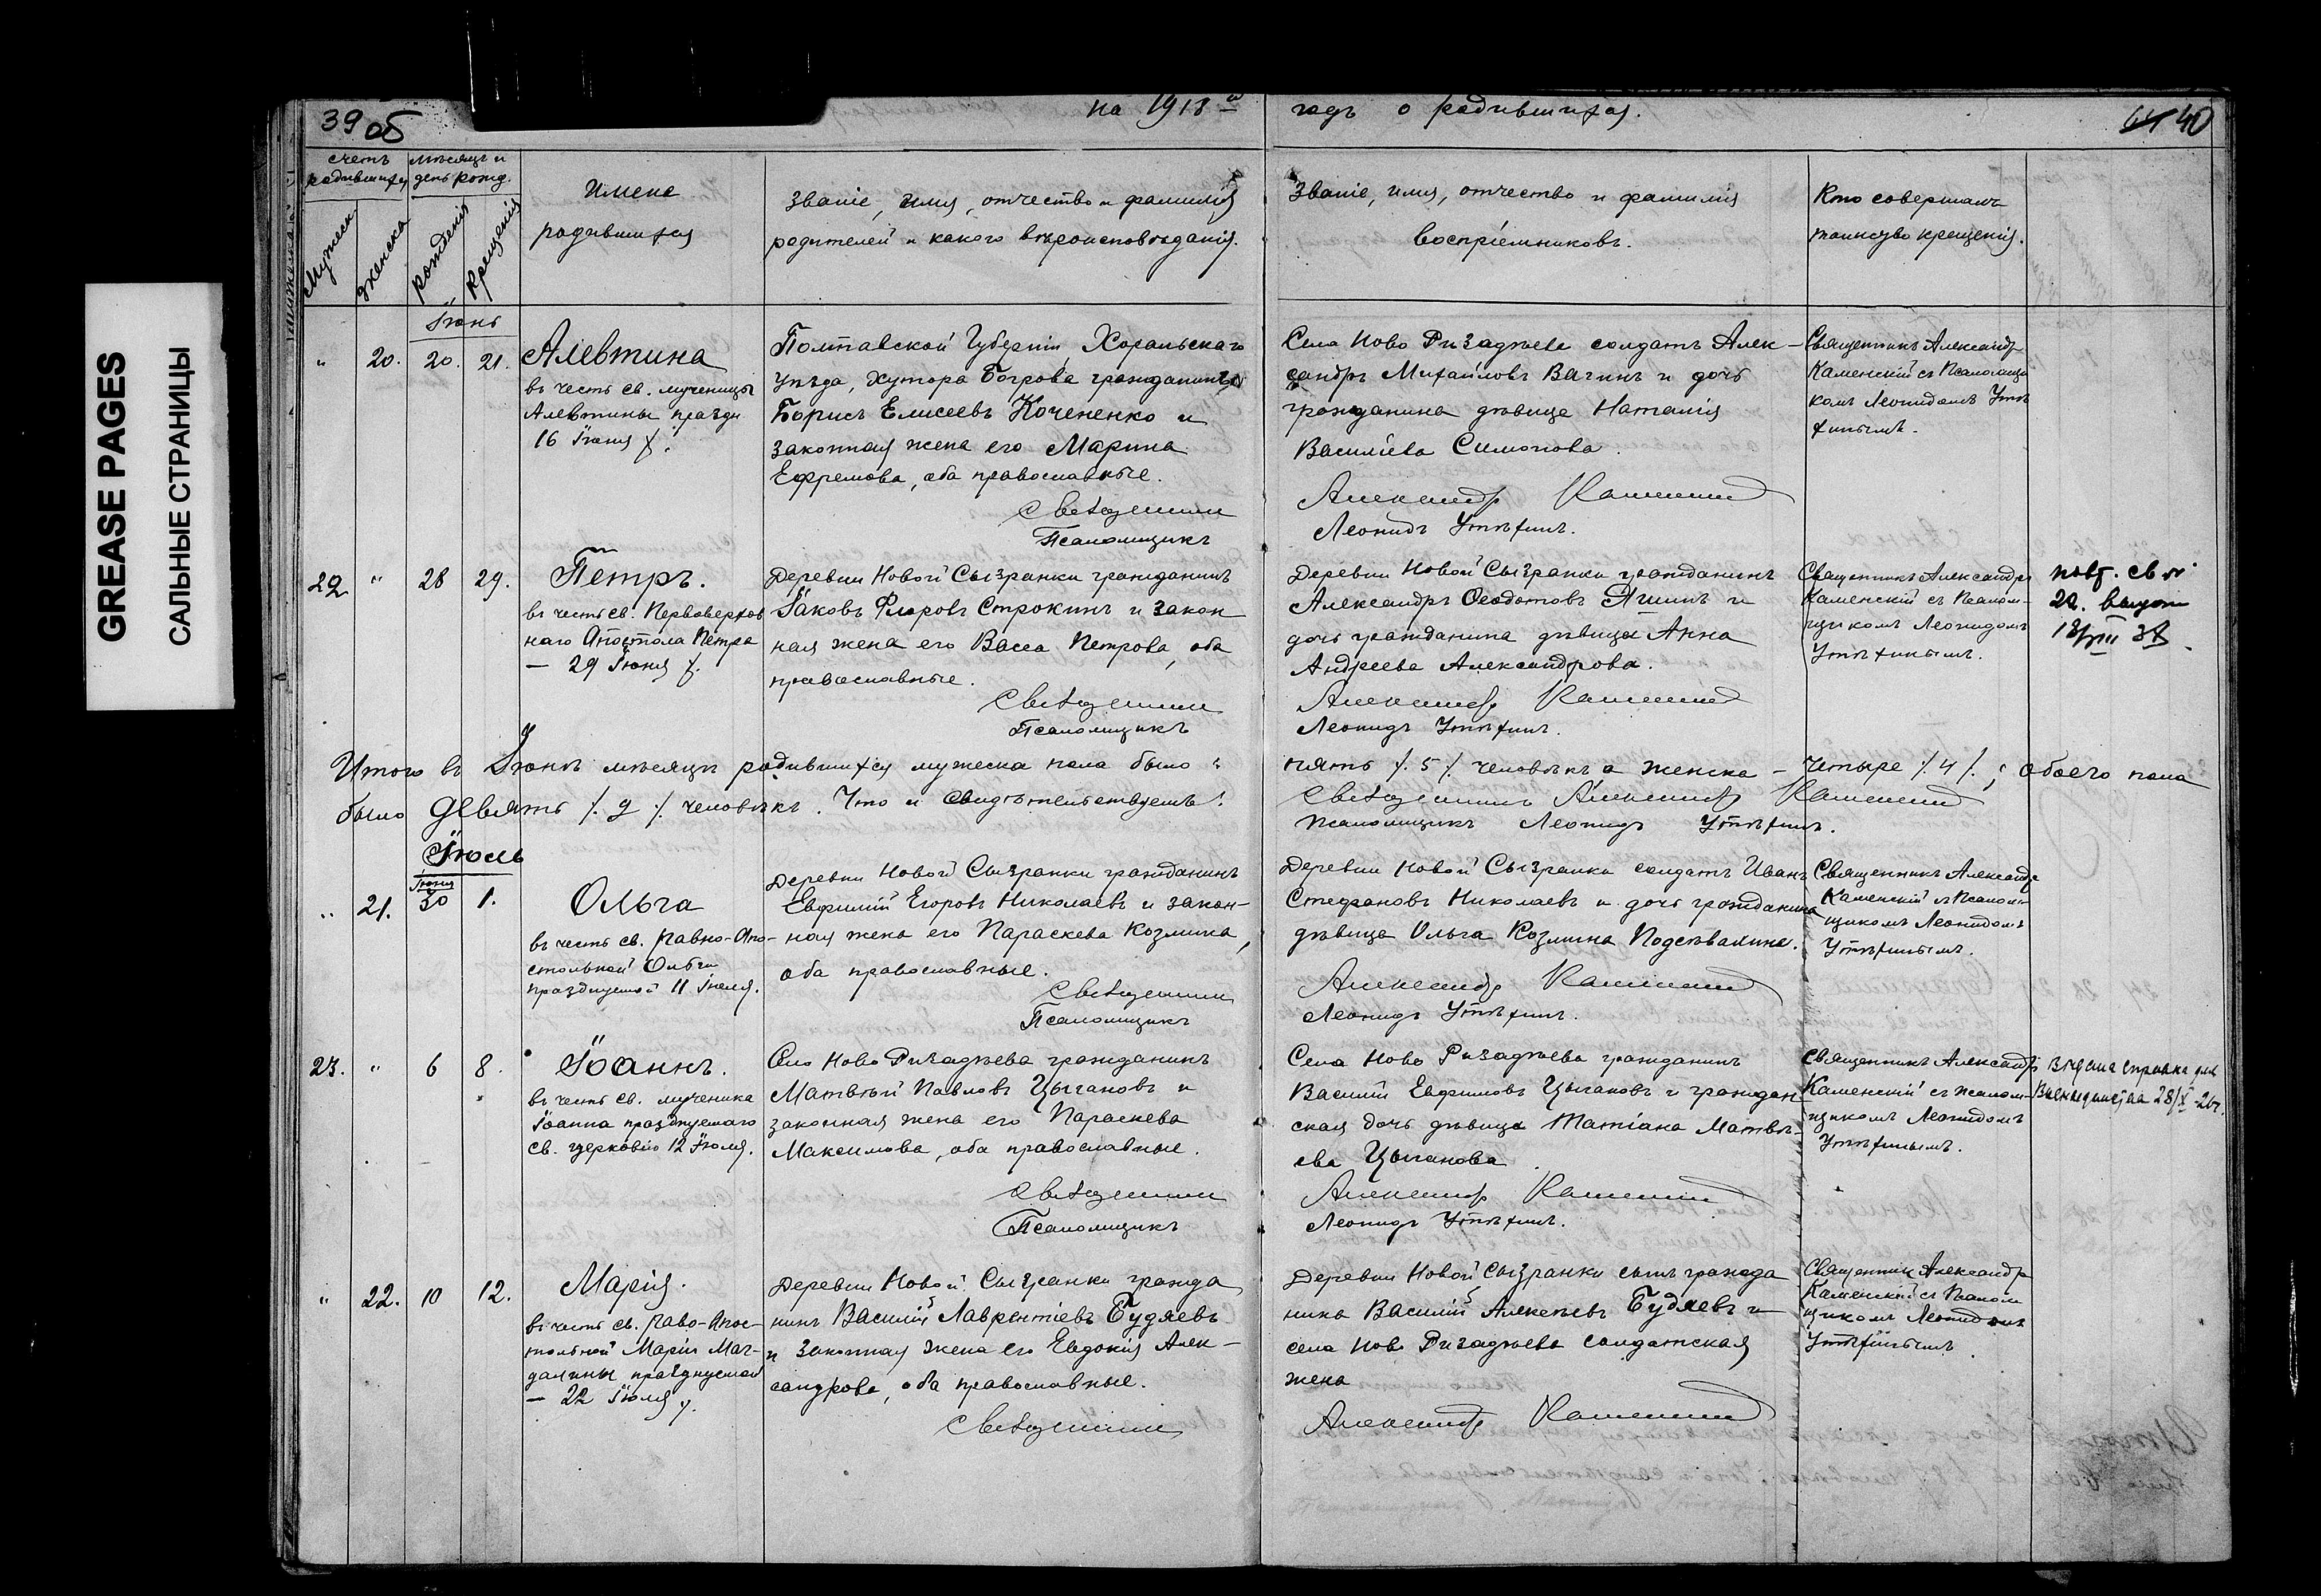 GREASE PAGES
САЛЬНЫЕ СТРАНИЦЫ
39 об
на 1918 й
годъ о родившихся.
64 40
счетъ родившихся
мѣсяцъ и день рожд.
Мужеск.
Женска
Рожденія
Крещенія
Имена
родившихся
Званіе, имя, отчество и фамилія
родителей и какого вѣроисповѣданія.
Званіе, имя, отчество и фамилія
воспріемниковъ.
Кто совершалъ
таинство крещенія.
Іюнь
" 20. 20. 21. Алевтина
въ честь св. мученицы
Алевтины праздн
16 Іюня
Полтавской Губерніи, Хорольскаго
уѣзда, Хутора Богрова гражданинъ
Борисъ Елисеевъ Кочененко и
законная жена его Марина
Ефремова, оба православные.
Священникъ
Псаломщикъ
Села Ново Ризадѣева солдатъ Алек-
сандръ Михайловъ Вагинъ и дочь
гражданина дѣвица Наталія
Василіева Симонова.
Александръ Каменскій
Леонидъ Утѣхинъ.
Священникъ Александръ
Каменскій съ Псаломщи
комъ Леонидомъ Утѣ
хинымъ.
22 " 28 29. Петръ.
въ честь св. Первоверхов
наго Апостола Петра
— 29 Іюня
Деревни Новой Сызранки гражданинъ
Іаковъ Флоровъ Строкинъ и закон
ная жена его Васса Петрова, оба
православные.
Священникъ
Псаломщикъ
Деревни Новой Сызранки гражданинъ
Александръ Ѳеодотовъ Яшинъ и
дочь гражданина дѣвица Анна
Андреева Александрова.
Александръ Каменскій
Леонидъ Утѣхинъ.
Священникъ Александръ
Каменскій съ Псалом-
щикомъ Леонидомъ
Утѣхинымъ.
повт. св во
Итого въ Іюнѣ мѣсяцѣ родившихся мужеска пола было
пять /. 5 /. человѣкъ а женска – четыре /. 4 /. ; обоего пола
было девять /. 9 /. человѣкъ. Что и свидѣтельствуемъ:
Священникъ Александръ Каменскій
Псаломщикъ Леонидъ Утѣхинъ.
Іюль
" 21. Іюня 30 1. Ольга
въ честь св. Равно-Апо-
стольной Ольги
празднуемой 11 Іюля.
Деревни Новой Сызранки гражданинъ
Евфимій Егоровъ Николаевъ и закон-
ная жена его Параскева Козмина,
оба православные.
Священникъ
Псаломщикъ
Деревни Новой Сызранки солдатъ Иванъ
Стефановъ Николаевъ и дочь гражданина
дѣвица Ольга Козмина Подсѣвалина.
Александръ Каменскій
Леонидъ Утѣхинъ.
Священникъ Александръ
Каменскій съ Псалом-
щикомъ Леонидомъ
Утѣхинымъ.
23. " 6 8. Іоаннъ.
въ честь св. мученика
Іоанна празднуемаго
св. церковію 12 Іюля.
Села Ново Ризадѣева гражданинъ
Матвѣй Павловъ Цыгановъ и
законная жена его Параскева
Максимова, оба православные.
Священникъ
Псаломщикъ
Села Ново Ризадѣева гражданинъ
Василій Евфимовъ Цыгановъ и граждан-
ская дочь дѣвица Татіана Матвѣ-
ева Цыганова
Александръ Каменскій
Леонидъ Утѣхинъ.
Священникъ Александръ
Каменскій съ Псалом-
щикомъ Леонидомъ
Утѣхинымъ.
справка для
" 22. 10 12. Марія.
въ честь св. Равно-Апос-
тольной Маріи Маг-
далины празднуемой
— 22 Іюля
Деревни Новой Сызранки гражда
нинъ Василій Лаврентіевъ Будяевъ
и законная жена его Евдокія Алек-
сандрова, оба православные.
Священникъ
Деревни Новой Сызранки сынъ гражда
нина Василій Алексѣевъ Будяевъ и
села Ново Ризадѣева солдатская
жена
Александръ Каменскій
Священникъ Александръ
Каменскій съ Псалом
щикомъ Леонидомъ
Утѣхинымъ